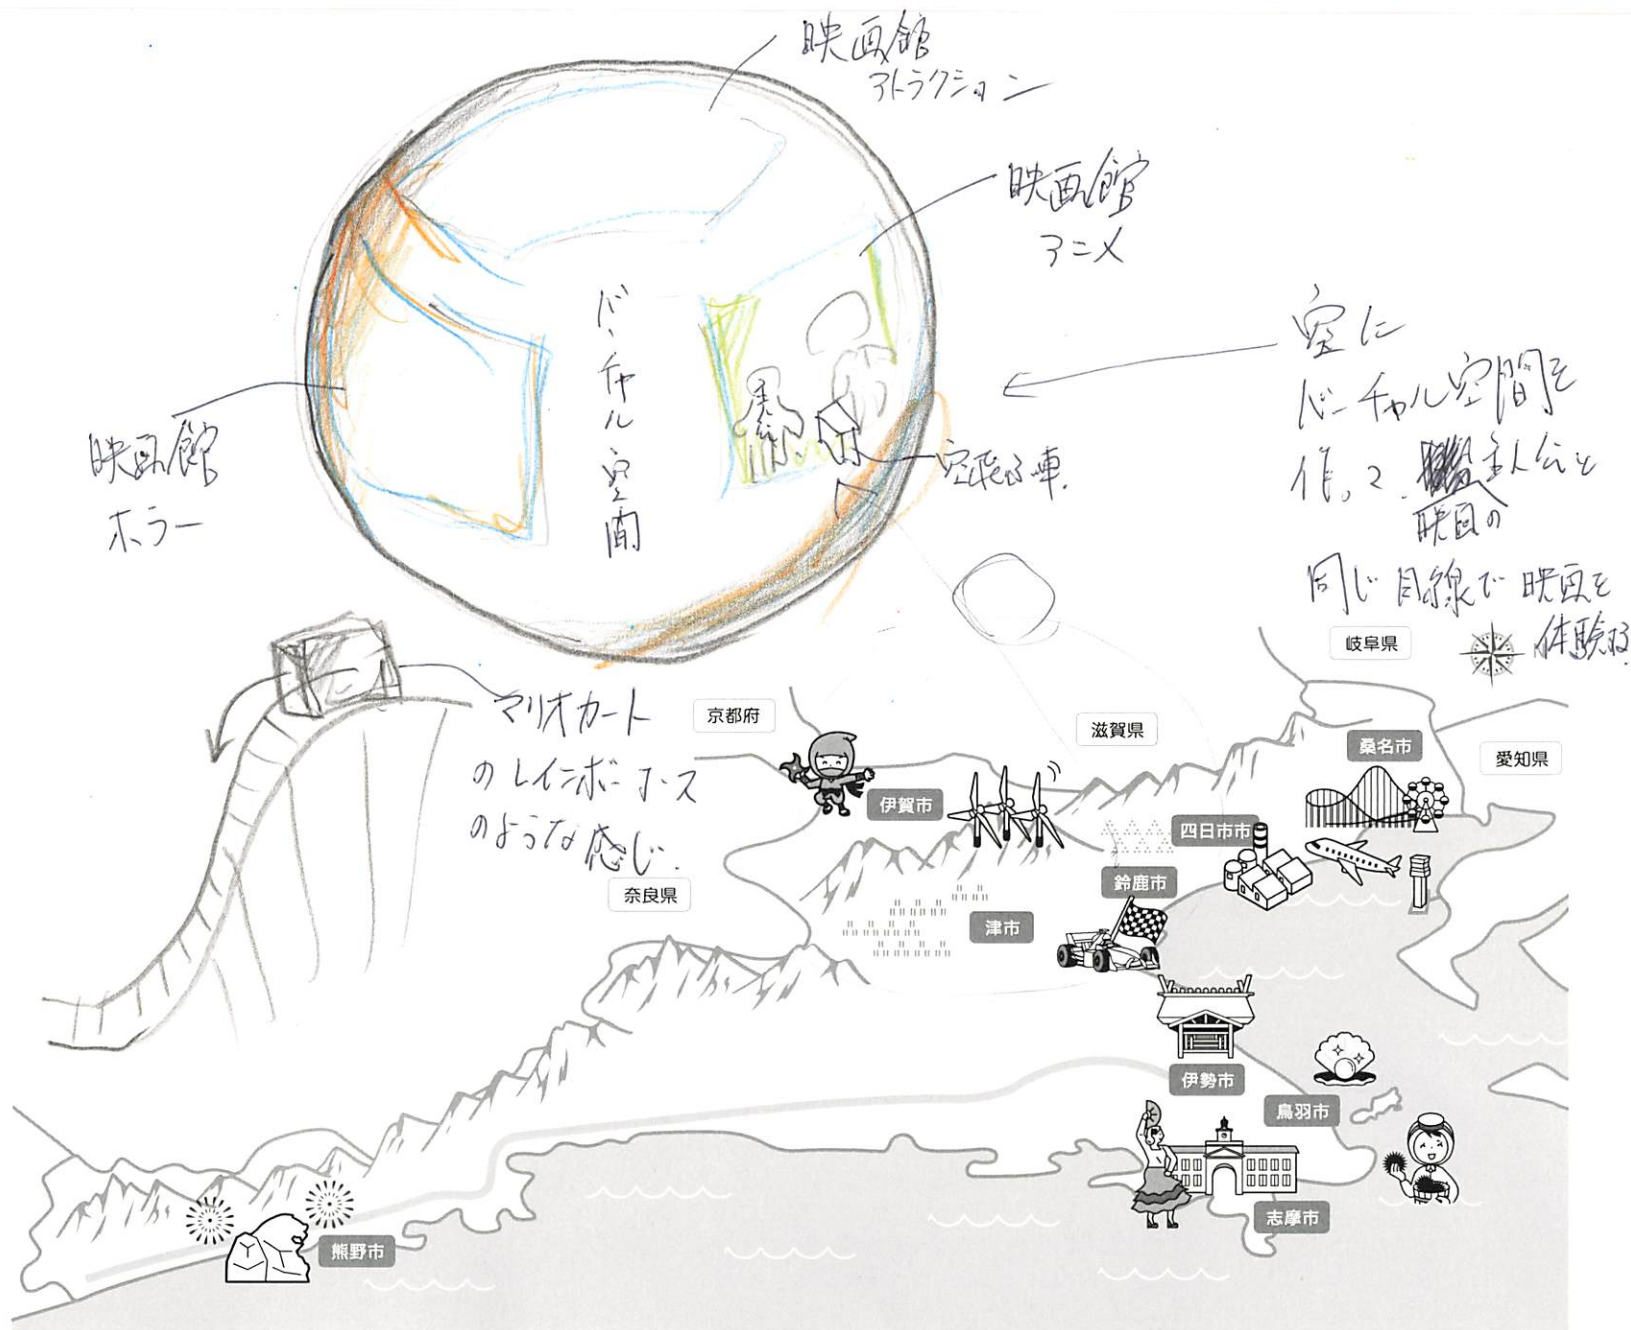 映画館
アトラクション
映画館
アニメ
バーチャル空間
映画館
ホラー
空飛ぶ車
空に
バーチャル空間を
作って、主人公と
映画の
同じ目線で映画を
体験する
マリオカート
のレインボーコース
のような感じ.
岐阜県
京都府
滋賀県
桑名市
愛知県
伊賀市
四日市市
鈴鹿市
奈良県
津市
伊勢市
鳥羽市
志摩市
熊野市